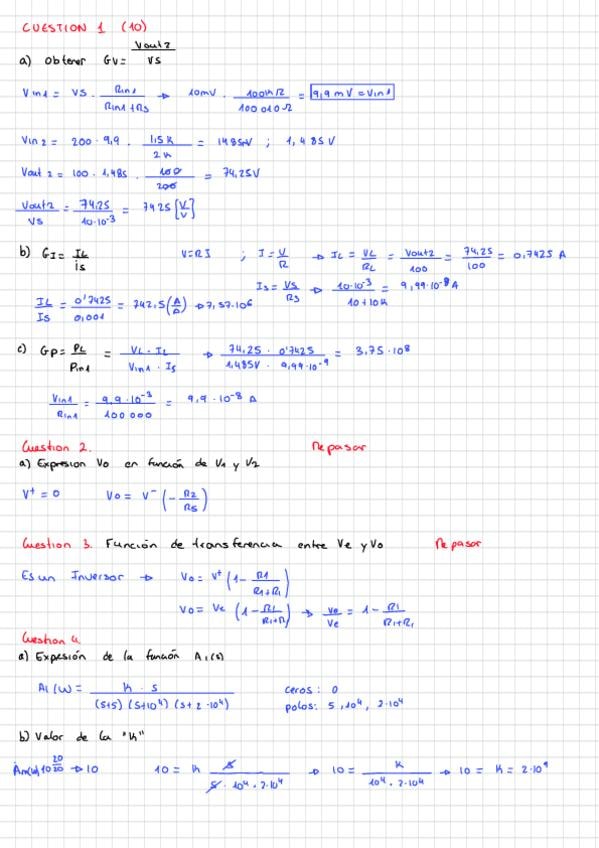 CUESTION 1 (10)
a) Obtener Gv = Vout2 / Vs
Vin1 = Vs · Rin1 / Rin1+Rs → 10mV · 100KΩ / 100 010Ω = 9,9 mV = Vin1
Vin2 = 200 · 9,9 · 1,5K / 2K = 1485mV ; 1,485V
Vout2 = 100 · 1,485 · 100 / 200 = 74,25V
Vout2 / Vs = 74,25 / 10·10-3 = 7425 [V/V]
b) GI = IL / is V=RI ; I = V/R → IL = VL / RL = Vout2 / 100 = 74,25 / 100 = 0,7425 A
Is = Vs / Rs → 10·10-3 / 10+10K = 9,99·10-9 A
IL / Is = 0'7425 / 0,001 = 742,5 (A/A) → 7,57·106
c) GP = PL / Pin1 = VL · IL / Vin1 · Is → 74,25 · 0'7425 / 1,485V · 9,99·10-9 = 3,75·108
Vin1 / Rin1 = 9,9·10-3 / 100 000 = 9,9·10-8 A
Cuestion 2. Repasar
a) Expresion Vo en función de V1 y V2
V+ = 0 Vo = V- (- R2 / R5)
Cuestion 3. Función de transferencia entre Ve y Vo Repasar
Es un Inversor → Vo = V+ (1 - R1 / R1+R1)
Vo = Ve (1 - R1 / R1+R1) → Vo / Ve = 1 - R1 / R1+R1
Cuestion 4
a) Expresión de la función A1(s)
A1(w) = K · s / (s+5) (s+104) (s+2·104) ceros: 0
polos: 5, 104, 2·104
b) Valor de la "K"
Am(w) 10 20/20 → 10 10 = K s / s · 104 · 2·104 → 10 = K / 104 · 2·104 → 10 = K = 2·109